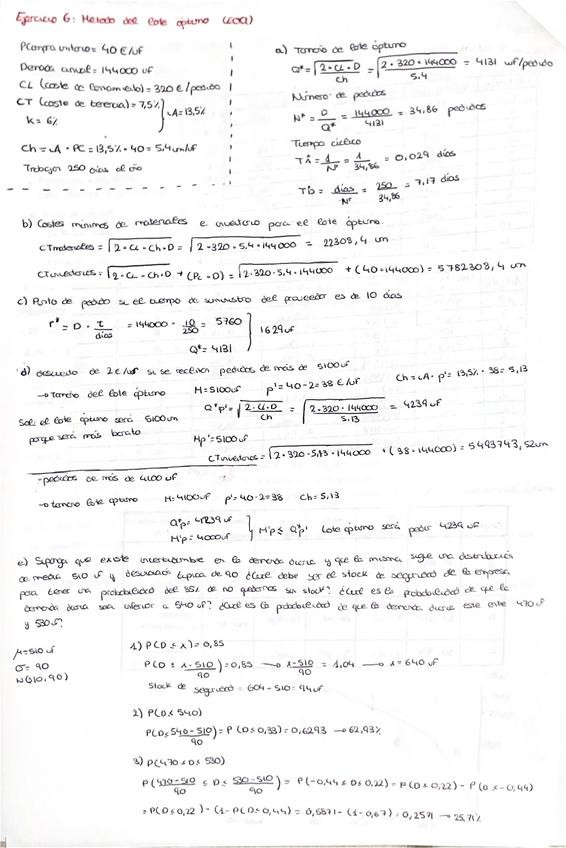 Ejercicio 6: Metodo del lote óptimo (EOQ)
P compra unitario = 40 €/uf
Demanda anual = 144000 uf
CL (coste de lanzamiento) = 320 €/pedido
CT (coste de tenencia) = 7,5%
K = 6%
iA = 13,5%
Ch = iA · PC = 13,5% · 40 = 5,4 um/uf
Trabajan 250 días al año
a) Tamaño de lote óptimo
Q* = √(2·CL·D / Ch) = √(2·320·144000 / 5,4) = 4131 uf/pedido
Número de pedidos
N* = D / Q* = 144000 / 4131 = 34,86 pedidos
Tiempo ciclico
Tà = 1 / N* = 1 / 34,86 = 0,029 días
Tb = días / N* = 250 / 34,86 = 7,17 días
b) Costes minimos de materiales e inventario para el lote óptimo.
CTmateriales = √(2·CL·Ch·D) = √(2·320·5,4·144000) = 22308,4 um
CTinventarios = √(2·CL·Ch·D) + (Pc·D) = √(2·320·5,4·144000) + (40·144000) = 5782308,4 um
c) Punto de pedido si el tiempo de suministro del proveedor es de 10 días
r* = D · t / días = 144000 · 10 / 250 = 5760
Q* = 4131
1629 uf
d) descuento de 2€/uf si se realizan pedidos de más de 5100uf
→ Tamaño del lote óptimo M = 5100uf p' = 40-2 = 38 €/uf Ch = iA · p' = 13,5% · 38 = 5,13
Q*p' = √(2·CL·D / Ch) = √(2·320·144000 / 5,13) = 4239 uf
Sol: el lote óptimo será 5100um
porque será más barato
Mp' = 5100uf
CTinventarios = √(2·320·5,13·144000) + (38·144000) = 5493743,52um
- pedidos de más de 4100 uf
→ tamaño lote óptimo M = 4100 uf p' = 40-2 = 38 Ch = 5,13
Q*p' = 4239 uf
M'p = 4000uf
M'p ≤ Q*p' Lote óptimo será pedir 4239 uf
e) Suponga que existe incertidumbre en la demanda diaria y que la misma sigue una distribución
de media 510 uf y desviación tipica de 90 ¿Cuál debe ser el stock de seguridad de la empresa
para tener una probabilidad del 85% de no quedarnos sin stock? ¿Cuál es la probabilidad de que la
demanda diaria sea inferior a 540 uf? ¿Cuál es la probabilidad de que la demanda diaria esté entre 470 uf
y 530 uf?
μ = 510 uf
σ = 90
N(510,90)
1) P(D ≤ x) = 0,85
P(D ≤ x-510 / 90) = 0,85 → x-510 / 90 = 1,04 → x = 640 uf
Stock de seguridad = 604 - 510 = 94uf
2) P(D ≤ 540)
P(D ≤ 540-510 / 90) = P(D ≤ 0,33) = 0,6293 → 62,93%
3) P(470 ≤ D ≤ 530)
P(470-510 / 90 ≤ D ≤ 530-510 / 90) = P(-0,44 ≤ D ≤ 0,22) = P(D ≤ 0,22) - P(D ≤ -0,44)
= P(D ≤ 0,22) - (1 - P(D ≤ 0,44) = 0,5871 - (1 - 0,67) = 0,2571 → 25,71%